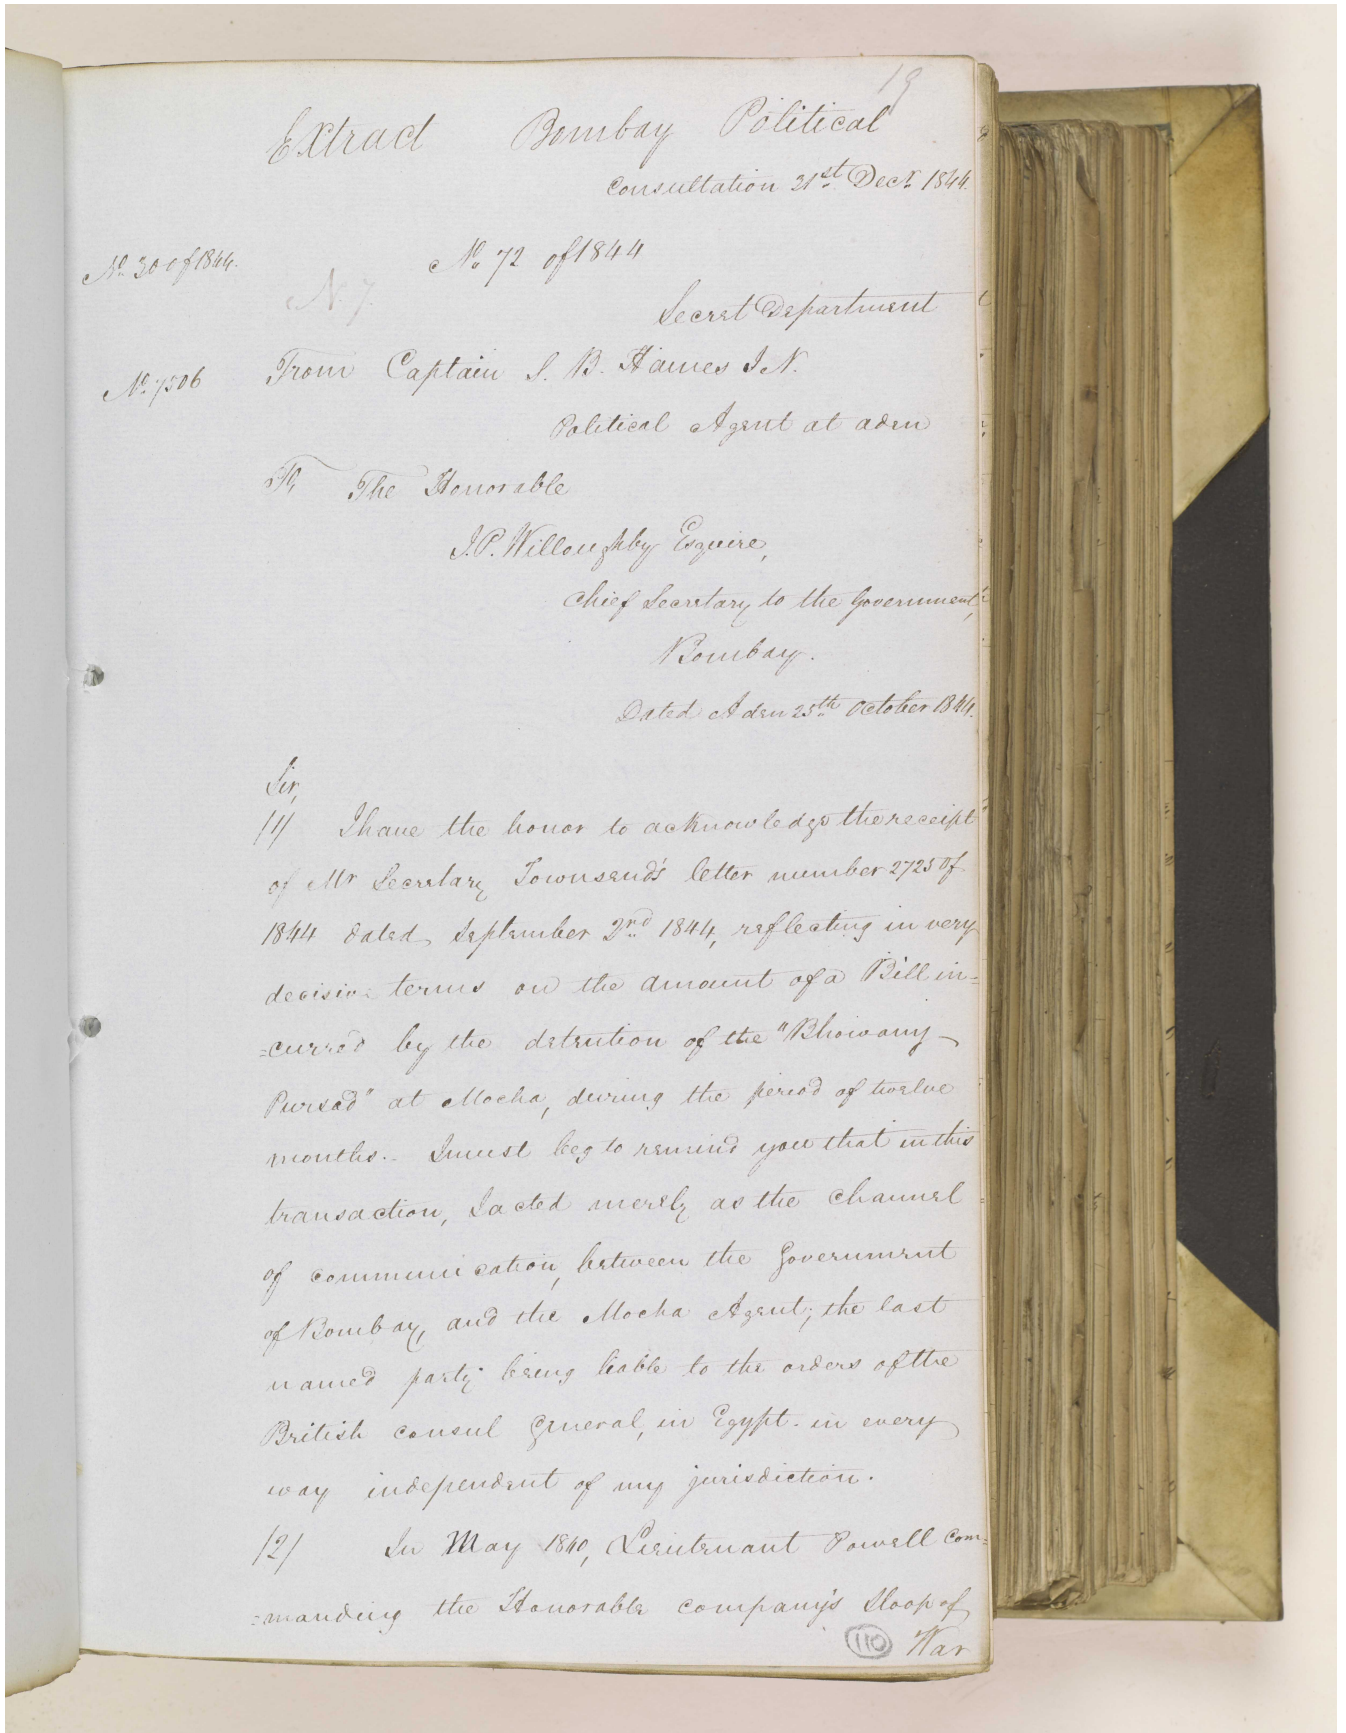 19
Extract Bombay Political
Consultation 31st Decr. 1844.
No. 30 of 1844.
No. 72 of 1844
No. 7
Secret Department
No. 7506
From Captain S. B. Haines I. N.
Political Agent at aden
To, The Honorable
J. P. Willoughby Esquire,
Chief Secretary to the Government,
Bombay.
Dated Aden 25th October 1844.
Sir,
/1/ I have the honor to acknowledge the receipt
of Mr Secretary Townsend's letter number 2725 of
1844 dated September 2nd 1844, reflecting in very
decisive terms on the amount of a Bill in-
=curred by the detention of the "Bhowany
Pursad" at Mocha, during the period of twelve
months. I must beg to remind you that in this
transaction, I acted merely as the Channel
of communication, between the Government
of Bombay, and the Mocha Agent; the last
named party being liable to the orders of the
British Consul General, in Egypt. in every
way independent of my jurisdiction.
/2/ In May 1840, Lieutenant Powell com=
=manding the Honorable Company's Sloop of
110 War